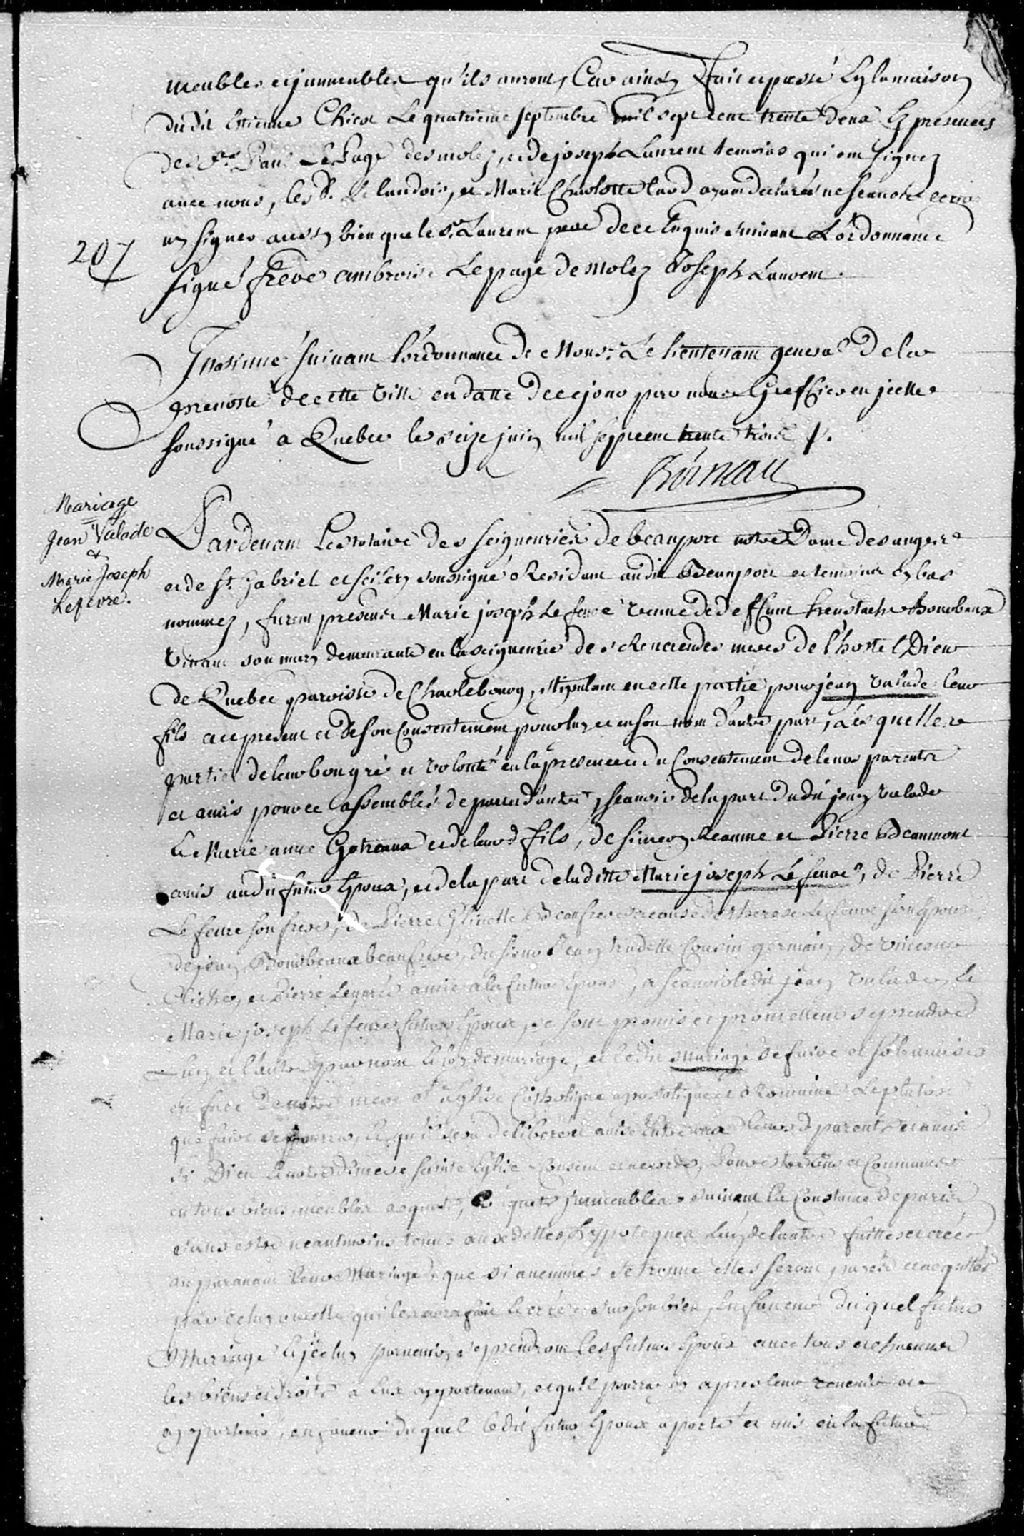 meubles et immeubles qu'ils auront, Car ainsy &c Fait et passé en la maison
dudit Etienne Chicot Le quatrieme septembre mil sept cent trente deux En presences
des Srs Paul LePage desmolez, et de joseph Laurent temoins qui ont signez
avec nous, les Sr. et Marie Charlotte ayant declarés ne scavoir ecrire
ny signer aussy bien que le Sr Laurent pere de ce Enquis suivant L'ordonnance
Signé frere ambroise Lepage de molez Joseph Laurent.
207
Insinué suivant l'ordonnance de Monsr. Le Lieutenant general de la
prevosté de cette ville en datte de ce jour par nous Greffier en jcelle
soussigné a Quebec le seize juin mil sept cent trente trois /.
Boisseau
Mariage
Jean Valade
&
Marie Joseph
Lefevre.
Pardevant Le Notaire des seigneuries de beauport notre Dame des anges
et de St. Gabriel et soussigné Residant audit Beauport et temoins En bas
nommez, furent presents Marie joseph Le fevre veuve de deffunt
vivant son mary demeurante en la seigneurie des Reverendes meres de l'hostel Dieu
de Quebec paroisse de Charlebourg, stipulant en cette partie pour jean valade leur
fils a ce present et de son Consentement pour luy et en son nom d'autre part, Lesquelles
parties de leur bon gré et volonté en la presence et du Consentement de leurs parents
et amis pour ce assemblés de part et d'autre, scavoir de la part dudit jean valade
de Marie anne Gotreaux et de leurd fils, de simon Reaume et Pierre Beaumont
amis audit futur Epoux, et de la part de laditte Marie joseph Le fevre, de Pierre
Le fevre son frere, de Pierre Glinelle Beaufrere a cause de therese Le fevre son Epouse
de jean Bourbeaux beaufrere, du sieur jean trudelle Cousin germain, de vincent
et Pierre Legaré amis a la future Epouse, a scavoir ledit jean valade, Le
Marie joseph Lefevre future Epouse, se sont promis et promettent se prendre
L'un et l'autre par nom et loy de mariage, et ledit Mariage se faire et solemniser
en face de notre mere ste Eglise Catholique apostolique et Romaine le plutost
que faire se pourra, et qu'il sera deliberé entre Eux leursd parents et amis
si Dieu et notre dite mere sainte Eglise Consent et accorde, Pour Etre uns et Communs
en tous biens meubles acquests, Conquests jmmeubles suivant la Coustume de paris
sans estre neantmoins tenus aux dettes hypoteques L'un de l'autre faittes et créés
auparavant leur Mariage, que si aucunnes se trouve elles seront payés et acquittés
par celuy ou celle qui les aura fait et créé et sur son bien, En faveur duquel futur
Mariage et y parvenir, prendront les futurs Epoux avec tous et chacuns
les biens et droits a Eux appartenant, et qu'il pourra cy apres leur revenir et
appartenir, en faveur duquel ledit futur Epoux apporte et mis en la future